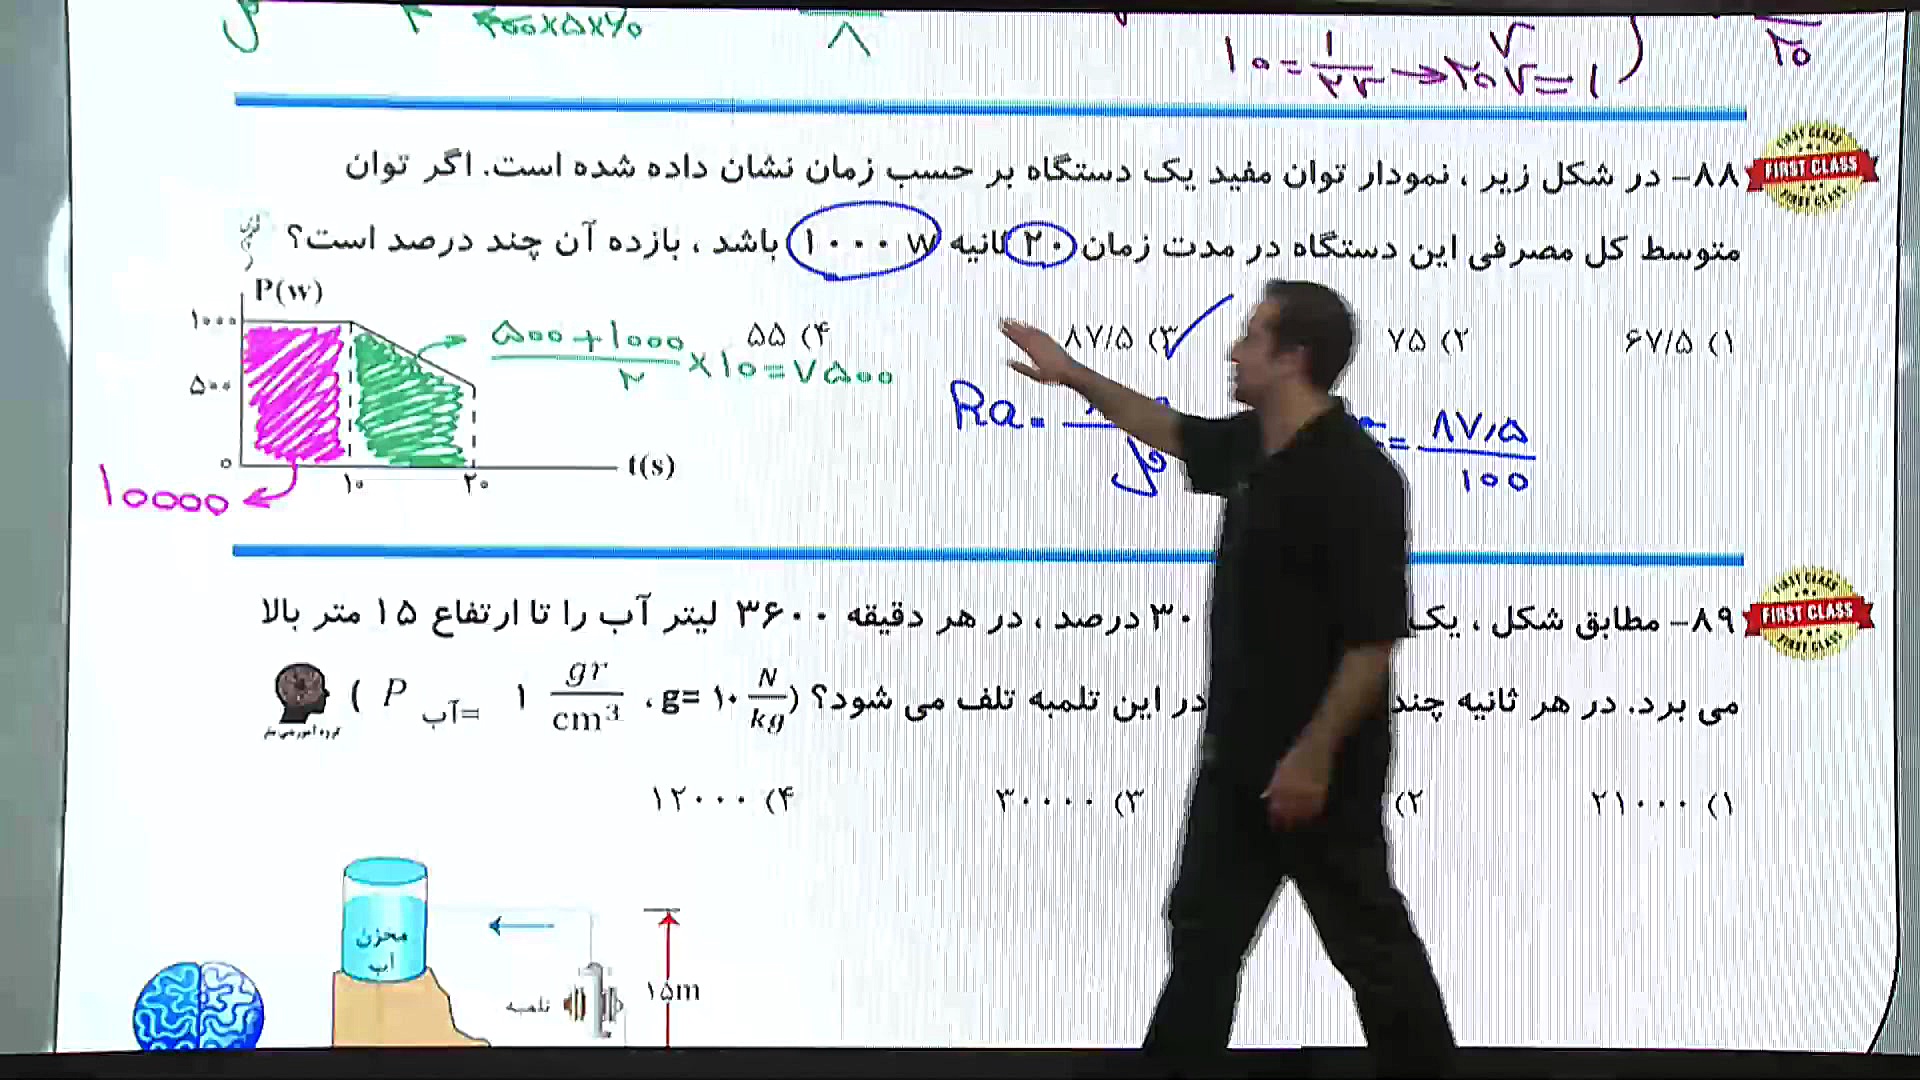 ۱۰ = ۱/۲۷ → ۲۰۷ = ۱
۲۰
FIRST CLASS
۸۸- در شکل زیر ، نمودار توان مفید یک دستگاه بر حسب زمان نشان داده شده است. اگر توان
متوسط کل مصرفی این دستگاه در مدت زمان ۲۰ ثانیه ۱۰۰۰ W باشد ، بازده آن چند درصد است؟
۱) ۶۷/۵
۲) ۷۵
۳) ۸۷/۵
۴) ۵۵
P(w)
۱۰۰۰
۵۰۰
۰
۱۰
۲۰
t(s)
۱۰۰۰۰
۵۰۰+۱۰۰۰/۲ ×۱۰=۷۵۰۰
Ra =
ک
= ۸۷/۵ / ۱۰۰
FIRST CLASS
۸۹- مطابق شکل ، یک ۳۰ درصد ، در هر دقیقه ۳۶۰۰ لیتر آب را تا ارتفاع ۱۵ متر بالا
می برد. در هر ثانیه چند در این تلمبه تلف می شود؟ (g= ۱۰ N/kg ، P آب= ۱ gr/cm³ )
۱) ۲۱۰۰۰
۲)
۳) ۳۰۰۰۰
۴) ۱۲۰۰۰
مخزن
آب
تلمبه
۱۵m